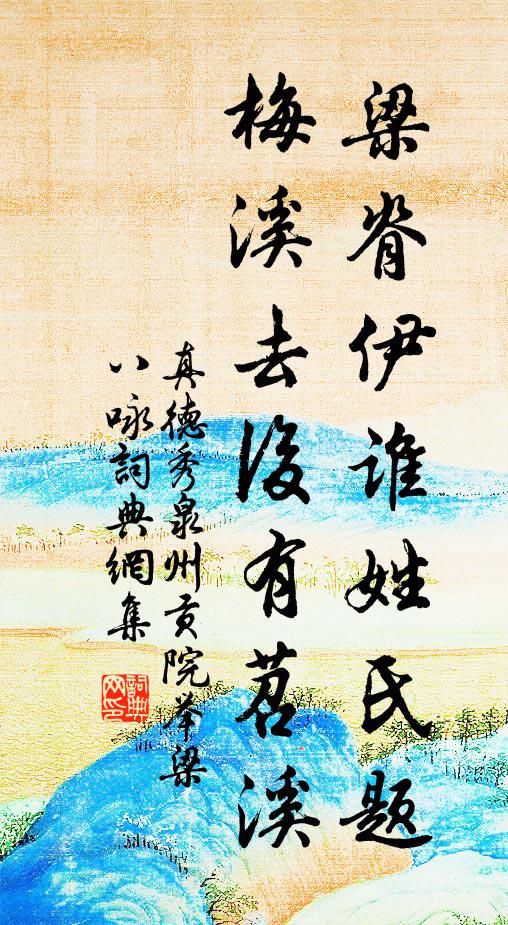 梁脊伊谁姓氏题
梅溪去後有苕溪
真德秀泉州贡院举梁
八咏詞典網集
詞典网印